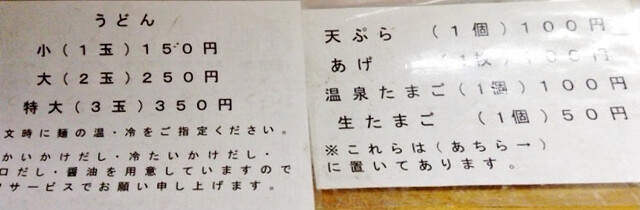 うどん
小(1玉)150円
大(2玉)250円
特大(3玉)350円
文時に麺の温・冷をご指定ください。
かいかけだし・冷たいかけだし・
口だし・醤油を用意していますので
サービスでお願い申し上げます。
天ぷら (1個)100円
あげ (1枚)100円
温泉たまご(1個)100円
生たまご (1個)50円
※これらは(あちら→)
に置いてあります。